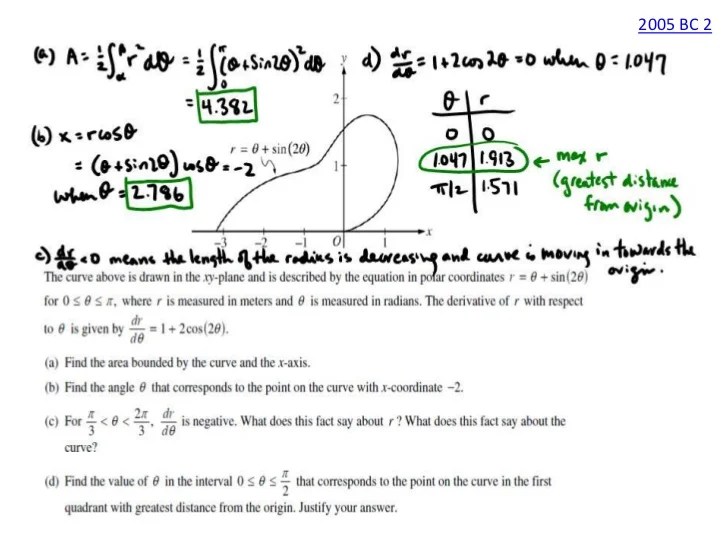 2005 BC 2
(a) A = 1/2 ∫_α^β r² dθ = 1/2 ∫_0^π (θ + sin2θ)² dθ
= 4.382
d) dr/dθ = 1 + 2cos2θ = 0 when θ = 1.047
θ | r
0 | 0
1.047 | 1.913 ← max r
π/2 | 1.571 (greatest distance
from origin)
(b) x = rcosθ
= (θ + sin2θ) cosθ = -2
when θ = 2.786
y
2
1
r = θ + sin(2θ)
-3 -2 -1 O 1 x
c) dr/dθ < 0 means the length of the radius is decreasing and curve is moving in towards the
origin.
The curve above is drawn in the xy-plane and is described by the equation in polar coordinates r = θ + sin(2θ)
for 0 ≤ θ ≤ π, where r is measured in meters and θ is measured in radians. The derivative of r with respect
to θ is given by dr/dθ = 1 + 2cos(2θ).
(a) Find the area bounded by the curve and the x-axis.
(b) Find the angle θ that corresponds to the point on the curve with x-coordinate −2.
(c) For π/3 < θ < 2π/3, dr/dθ is negative. What does this fact say about r? What does this fact say about the
curve?
(d) Find the value of θ in the interval 0 ≤ θ ≤ π/2 that corresponds to the point on the curve in the first
quadrant with greatest distance from the origin. Justify your answer.